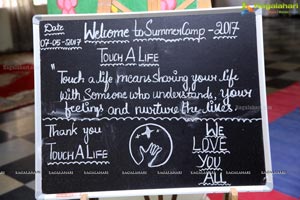 Date
07-05-2017
Welcome to SummerCamp-2017
TOUCH A LIFE
"Touch a life means sharing your life
with Someone who understands, your
feelings and nurture the
Thank you
TOUCH A LIFE
WE
LOVE
YOU
ALL
ragalahari